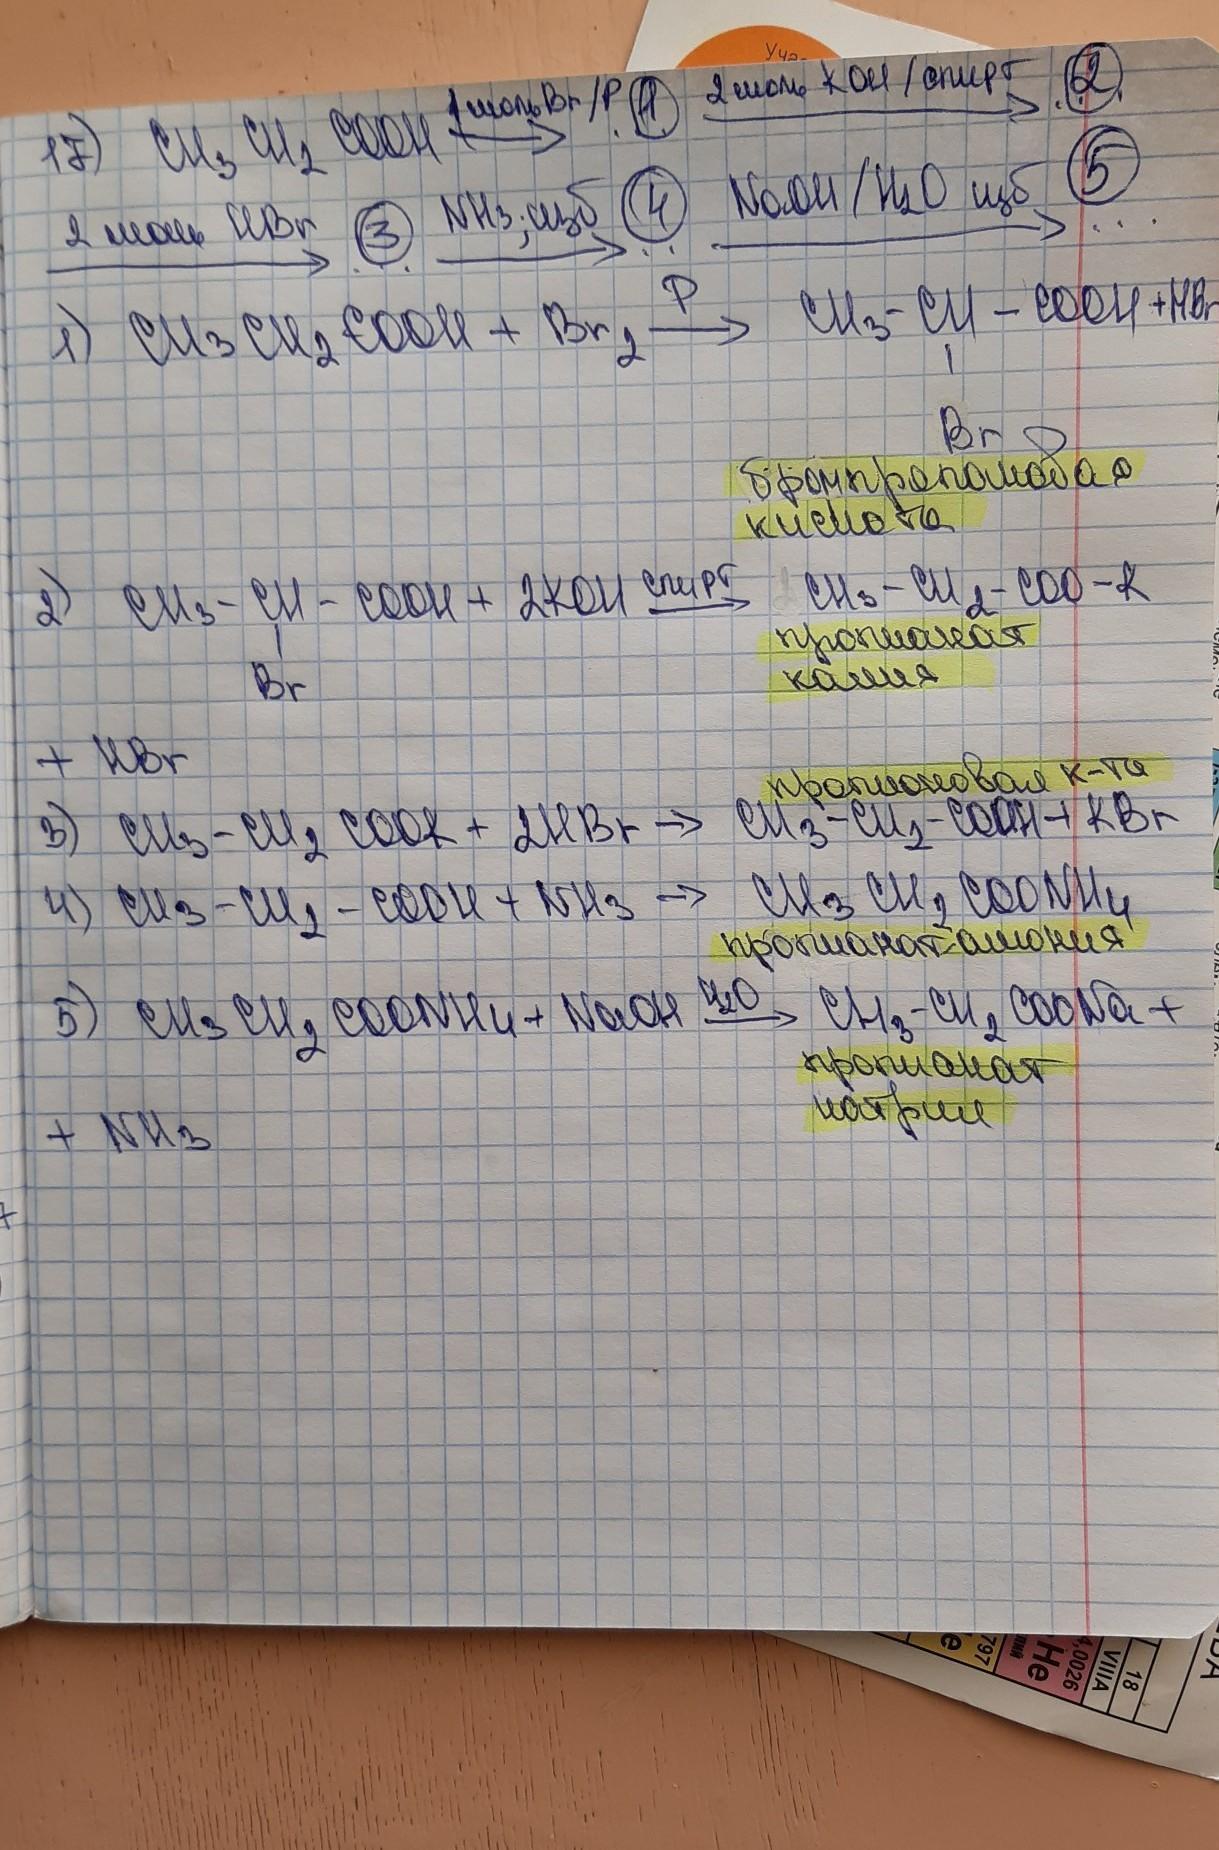 Учас
17) CH3 CH2 COOH 1 моль Br/P → ① 2 моль KOH/спирт → ②
2 моль HBr → ③ NH3; изб → ④ NaOH/H2O изб → ⑤ ....
1) CH3 CH2 COOH + Br2 P→ CH3 - CH - COOH + HBr
|
Br
бромпропановая
кислота
2) CH3 - CH - COOH + 2KOH спирт→ CH3 - CH2 - COO - K
|
Br
пропианат
калия
+ HBr
пропионовая к-та
3) CH3 - CH2 COOK + 2HBr → CH3 - CH2 - COOH + KBr
4) CH3 - CH2 - COOH + NH3 → CH3 CH2 COONH4
пропианат-амония
5) CH3 CH2 COONH4 + NaOH H2O→ CH3 - CH2 COONa +
пропианат
натрии
+ NH3
18
VIIIA
4,0026
He
797